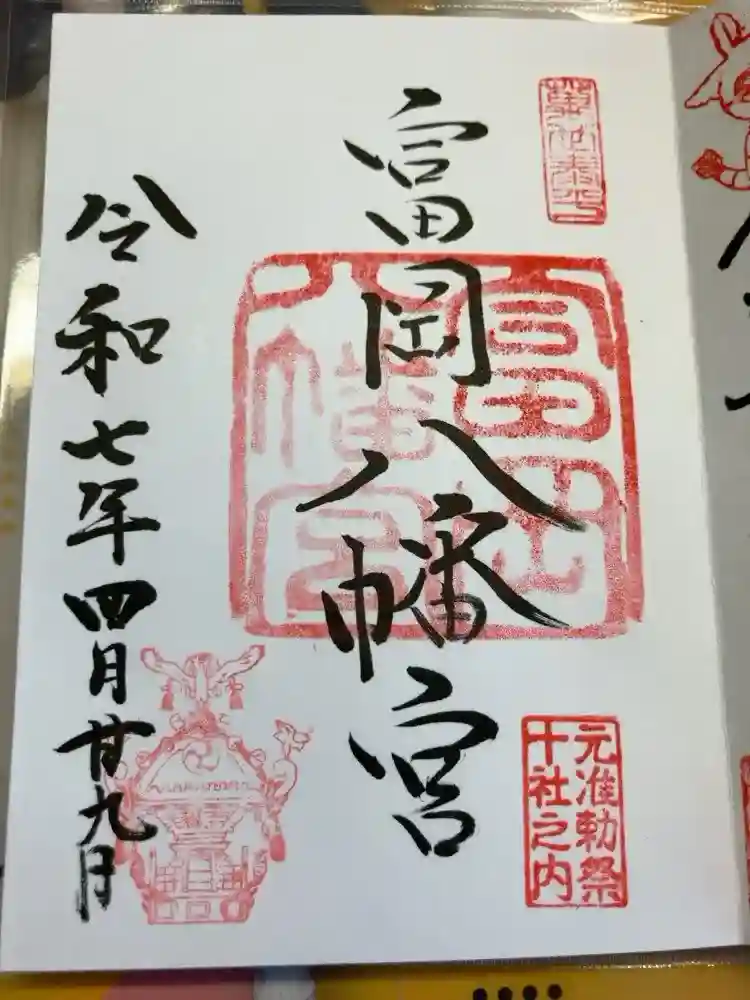 萬世泰平
富岡八幡宮
富岡
八幡宮
元准勅祭
十社之内
令和七年四月廿九日